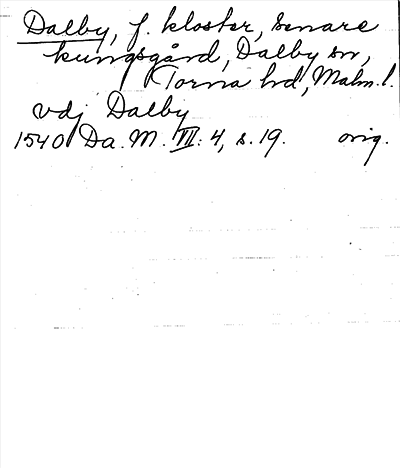 Dalby, f. kloster, senare
kungsgård, Dalby sn,
Torna hd, Malm. l.
vdj Dalby
1540 Da. M. III: 4, s. 19. orig.